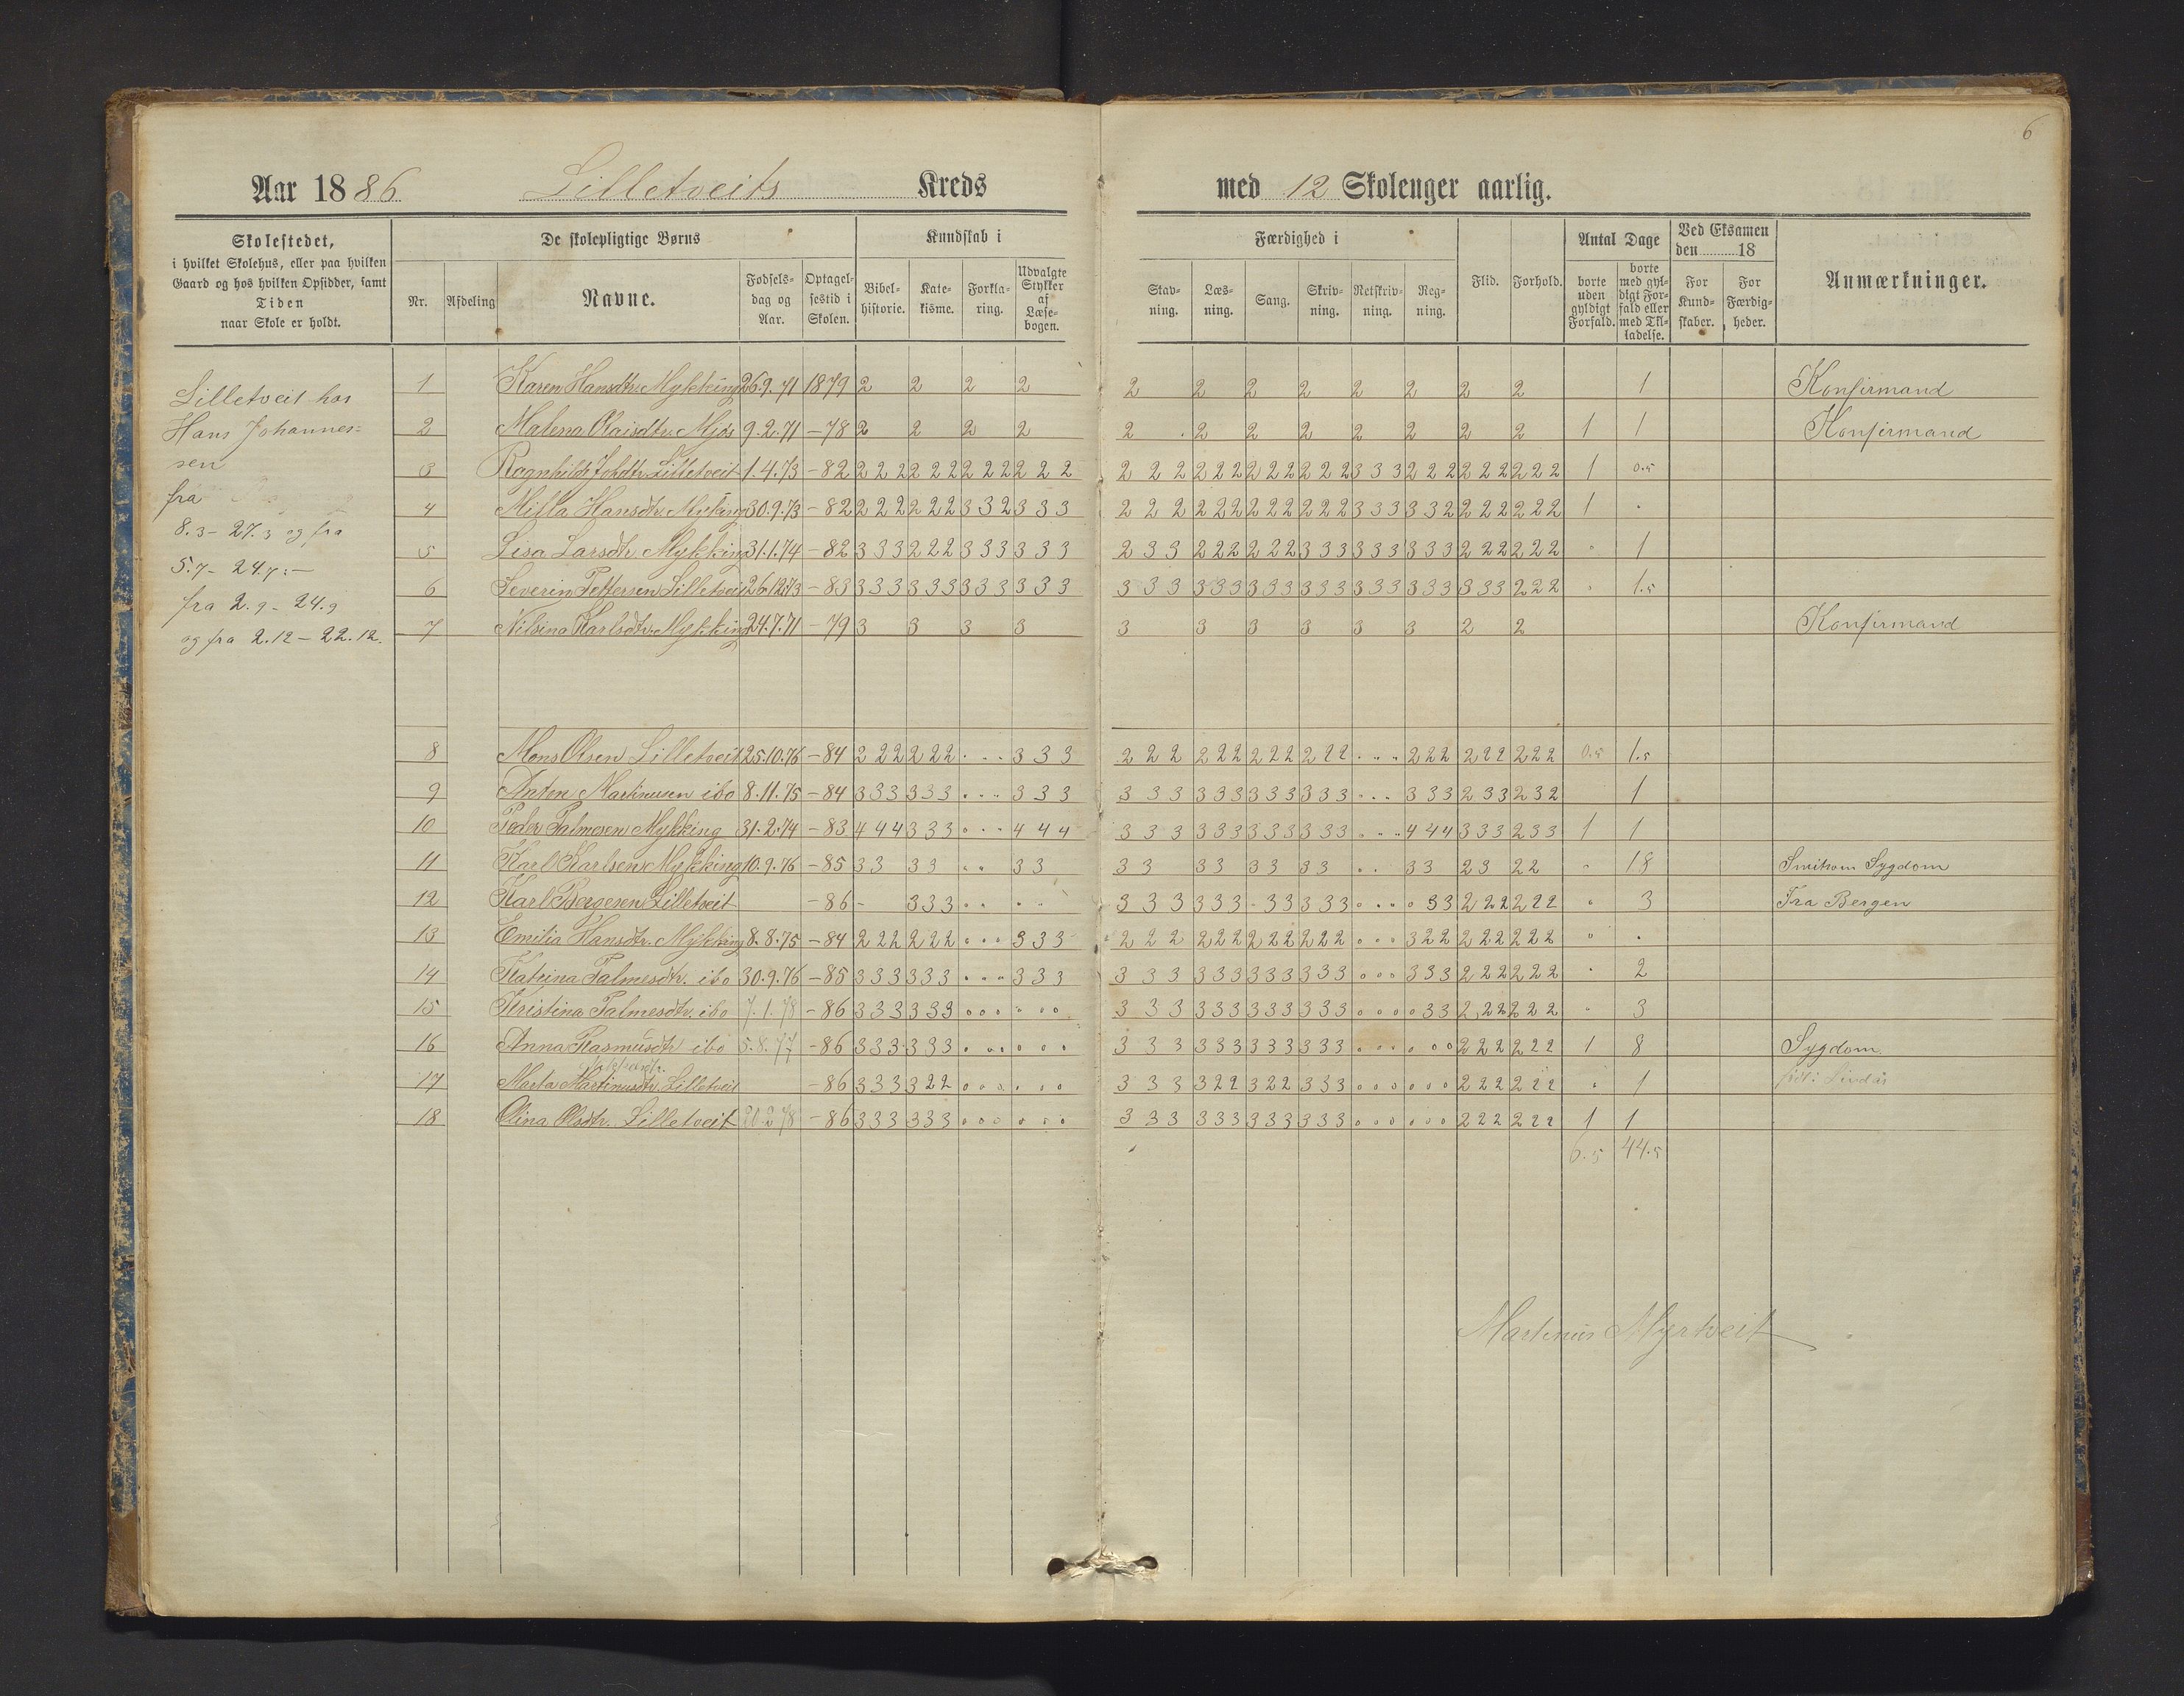 6
Aar 1886 Lilletveits Kreds med 12 Skoleuger aarlig.
Skolestedet, i hvilket Skolehus, eller paa hvilken Gaard og hos hvilken Opsidder, samt Tiden naar Skole er holdt.
De skolepligtige Børns
Nr. Afdeling Navne. Fødsels- dag og Aar. Optagel- sestid i Skolen.
Kundskab i
Bibel- historie. Kate- kisme. Forkla- ring. Udvalgte Stykker af Læse- bogen.
Færdighed i
Stav- ning. Læs- ning. Sang. Skriv- ning. Retskriv- ning. Reg- ning. Flid. Forhold.
Antal Dage
borte uden gyldigt Forfald. borte med gyl- digt For- fald eller med Til- ladelse.
Ved Eksamen den 18
For Kund- skaber. For Færdig- heder.
Anmærkninger.
Lilletveit hos
Hans Johannes-
sen
fra
8.3 - 27.3 og fra
5.7 - 24.7 -
fra 2.9 - 24.9
og fra 2.12 - 22.12.
1 Karen Hansdtr. Mykking 26.9.71 1879 2 2 2 2 2 2 2 2 2 2 2 2 1 Konfirmand
2 Malena Mjøs 9.2.71 -78 2 2 2 2 2 2 2 2 2 2 2 2 1 1 Konfirmand
3 Ragnhilde Johdtr. Lilletveit 1.4.73 -82 222 222 222 222 222 222 222 222 333 222 222 222 1 0.5
4 Milla Hansdtr. Myking 30.9.73 -82 222 222 332 333 222 222 222 222 333 332 222 222 1 .
5 Lisa Larsdtr. Mykking 31.1.74 -82 333 222 333 333 233 222 222 333 333 333 222 222 . 1
6 Severin Pettersen Lilletveit 26.12.73 -83 333 333 333 333 333 333 333 333 333 333 333 222 . 1.5
7 Nilsina Karlsdtr. Mykking 24.7.71 -79 3 3 3 3 3 3 3 3 3 3 2 2 Konfirmand
8 Mons Olsen Lilletveit 25.10.76 -84 222 222 ... 333 222 222 222 222 ... 222 222 222 0.5 1.5
9 Anton Martinusen ibo 8.11.75 -84 333 333 ... 333 333 333 333 333 ... 333 233 232 1
10 Peder Palmesen Mykking 31.2.74 -83 444 333 ... 444 333 333 333 333 ... 444 333 233 1 1
11 Karl Karlsen Mykking 10.9.76 -85 33 33 .. 33 33 33 33 33 .. 33 23 22 . 18 Smitsom Sygdom
12 Karl Bergesen Lilletveit -86 - 333 .. .. 333 333 .33 333 ... .33 222 222 . 3 Fra Bergen
13 Emilia Hansdtr. Mykking 8.8.75 -84 222 222 ... 333 222 222 222 222 ... 322 222 222 . .
14 Katrina Palmesdtr. ibo 30.9.76 -85 333 333 ... 333 333 333 333 333 ... 333 222 222 . 2
15 Kristina Palmesdtr. ibo 7.1.78 -86 333 333 ... ... 333 333 333 333 ... .33 222 222 . 3
16 Anna Rasmusdtr. ibo 5.8.77 -86 333 333 ... ... 333 333 333 333 ... ... 222 222 1 8 Sygdom.
17 Marta Martinusdtr. Lilletveit -86 333 322 ... ... 333 322 322 333 ... ... 222 222 . 1
18 Olina Olsdtr. Lilletveit 20.2.78 -86 333 333 ... ... 333 333 333 333 ... ... 222 222 1 1
6.5 44.5
Martinus Myrtveit